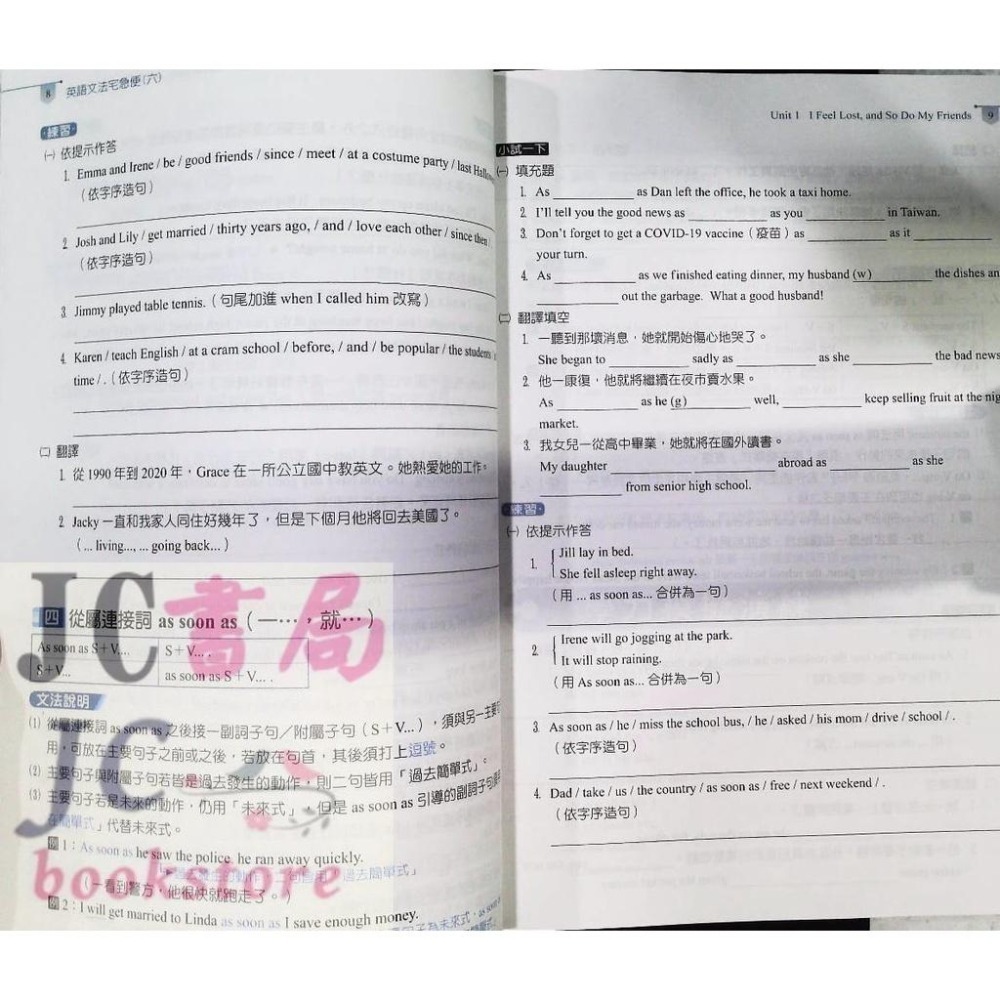 8 英語文法宅急便(六)
練習
㈠ 依提示作答
1. Emma and Irene / be / good friends / since / meet / at a costume party / last
(依字序造句)
2. Josh and Lily / get married / thirty years ago, / and / love each other / since then / .
(依字序造句)
3. Jimmy played table tennis. (句尾加進 when I called him 改寫)
4. Karen / teach English / at a cram school / before, / and / be popular / the students
time / . (依字序造句)
㈡ 翻譯
1. 從 1990 年到 2020 年,Grace 在一所公立國中教英文。她熱愛她的工作。
2. Jacky 一直和我家人同住好幾年了,但是下個月他將回去美國了。
(... living..., ... going back...)
四 從屬連接詞 as soon as (一…,就…)
As soon as S+V... S+V... .
S+V... as soon as S+V... .
文法說明
(1) 從屬連接詞 as soon as 之後接一副詞子句/附屬子句(S+V...),須與另一主要
用,可放在主要句子之前或之後,若放在句首,其後須打上逗號。
(2) 主要句子與附屬子句若皆是過去發生的動作,則二句皆用「過去簡單式」。
(3) 主要句子若是未來的動作,仍用「未來式」,但是 as soon as 引導的副詞子句
在簡單式」代替未來式。
例1:As soon as he saw the police, he ran away quickly.
(一看到警方,他很快就跑走了。)
例2:I will get married to Linda as soon as I save enough money.
JC書局
JC
bookstore
Unit 1 I Feel Lost, and So Do My Friends 9
小試一下
㈠ 填充題
1. As ________ as Dan left the office, he took a taxi home.
2. I'll tell you the good news as ________ as you ________ in Taiwan.
3. Don't forget to get a COVID-19 vaccine (疫苗) as ________ as it ________
your turn.
4. As ________ as we finished eating dinner, my husband (w)________ the dishes an
________ out the garbage. What a good husband!
㈡ 翻譯填空
1. 一聽到那壞消息,她就開始傷心地哭了。
She began to ________ sadly as ________ as she ________ the bad news
2. 他一康復,他就將繼續在夜市賣水果。
As ________ as he (g)________ well, ________ keep selling fruit at the nig
market.
3. 我女兒一從高中畢業,她就將在國外讀書。
My daughter ________ ________ abroad as ________ as she
________ from senior high school.
練習
㈠ 依提示作答
1. Jill lay in bed.
She fell asleep right away.
(用 ... as soon as... 合併為一句)
2. Irene will go jogging at the park.
It will stop raining.
(用 As soon as... 合併為一句)
3. As soon as / he / miss the school bus, / he / asked / his mom / drive / school / .
(依字序造句)
4. Dad / take / us / the country / as soon as / free / next weekend / .
(依字序造句)